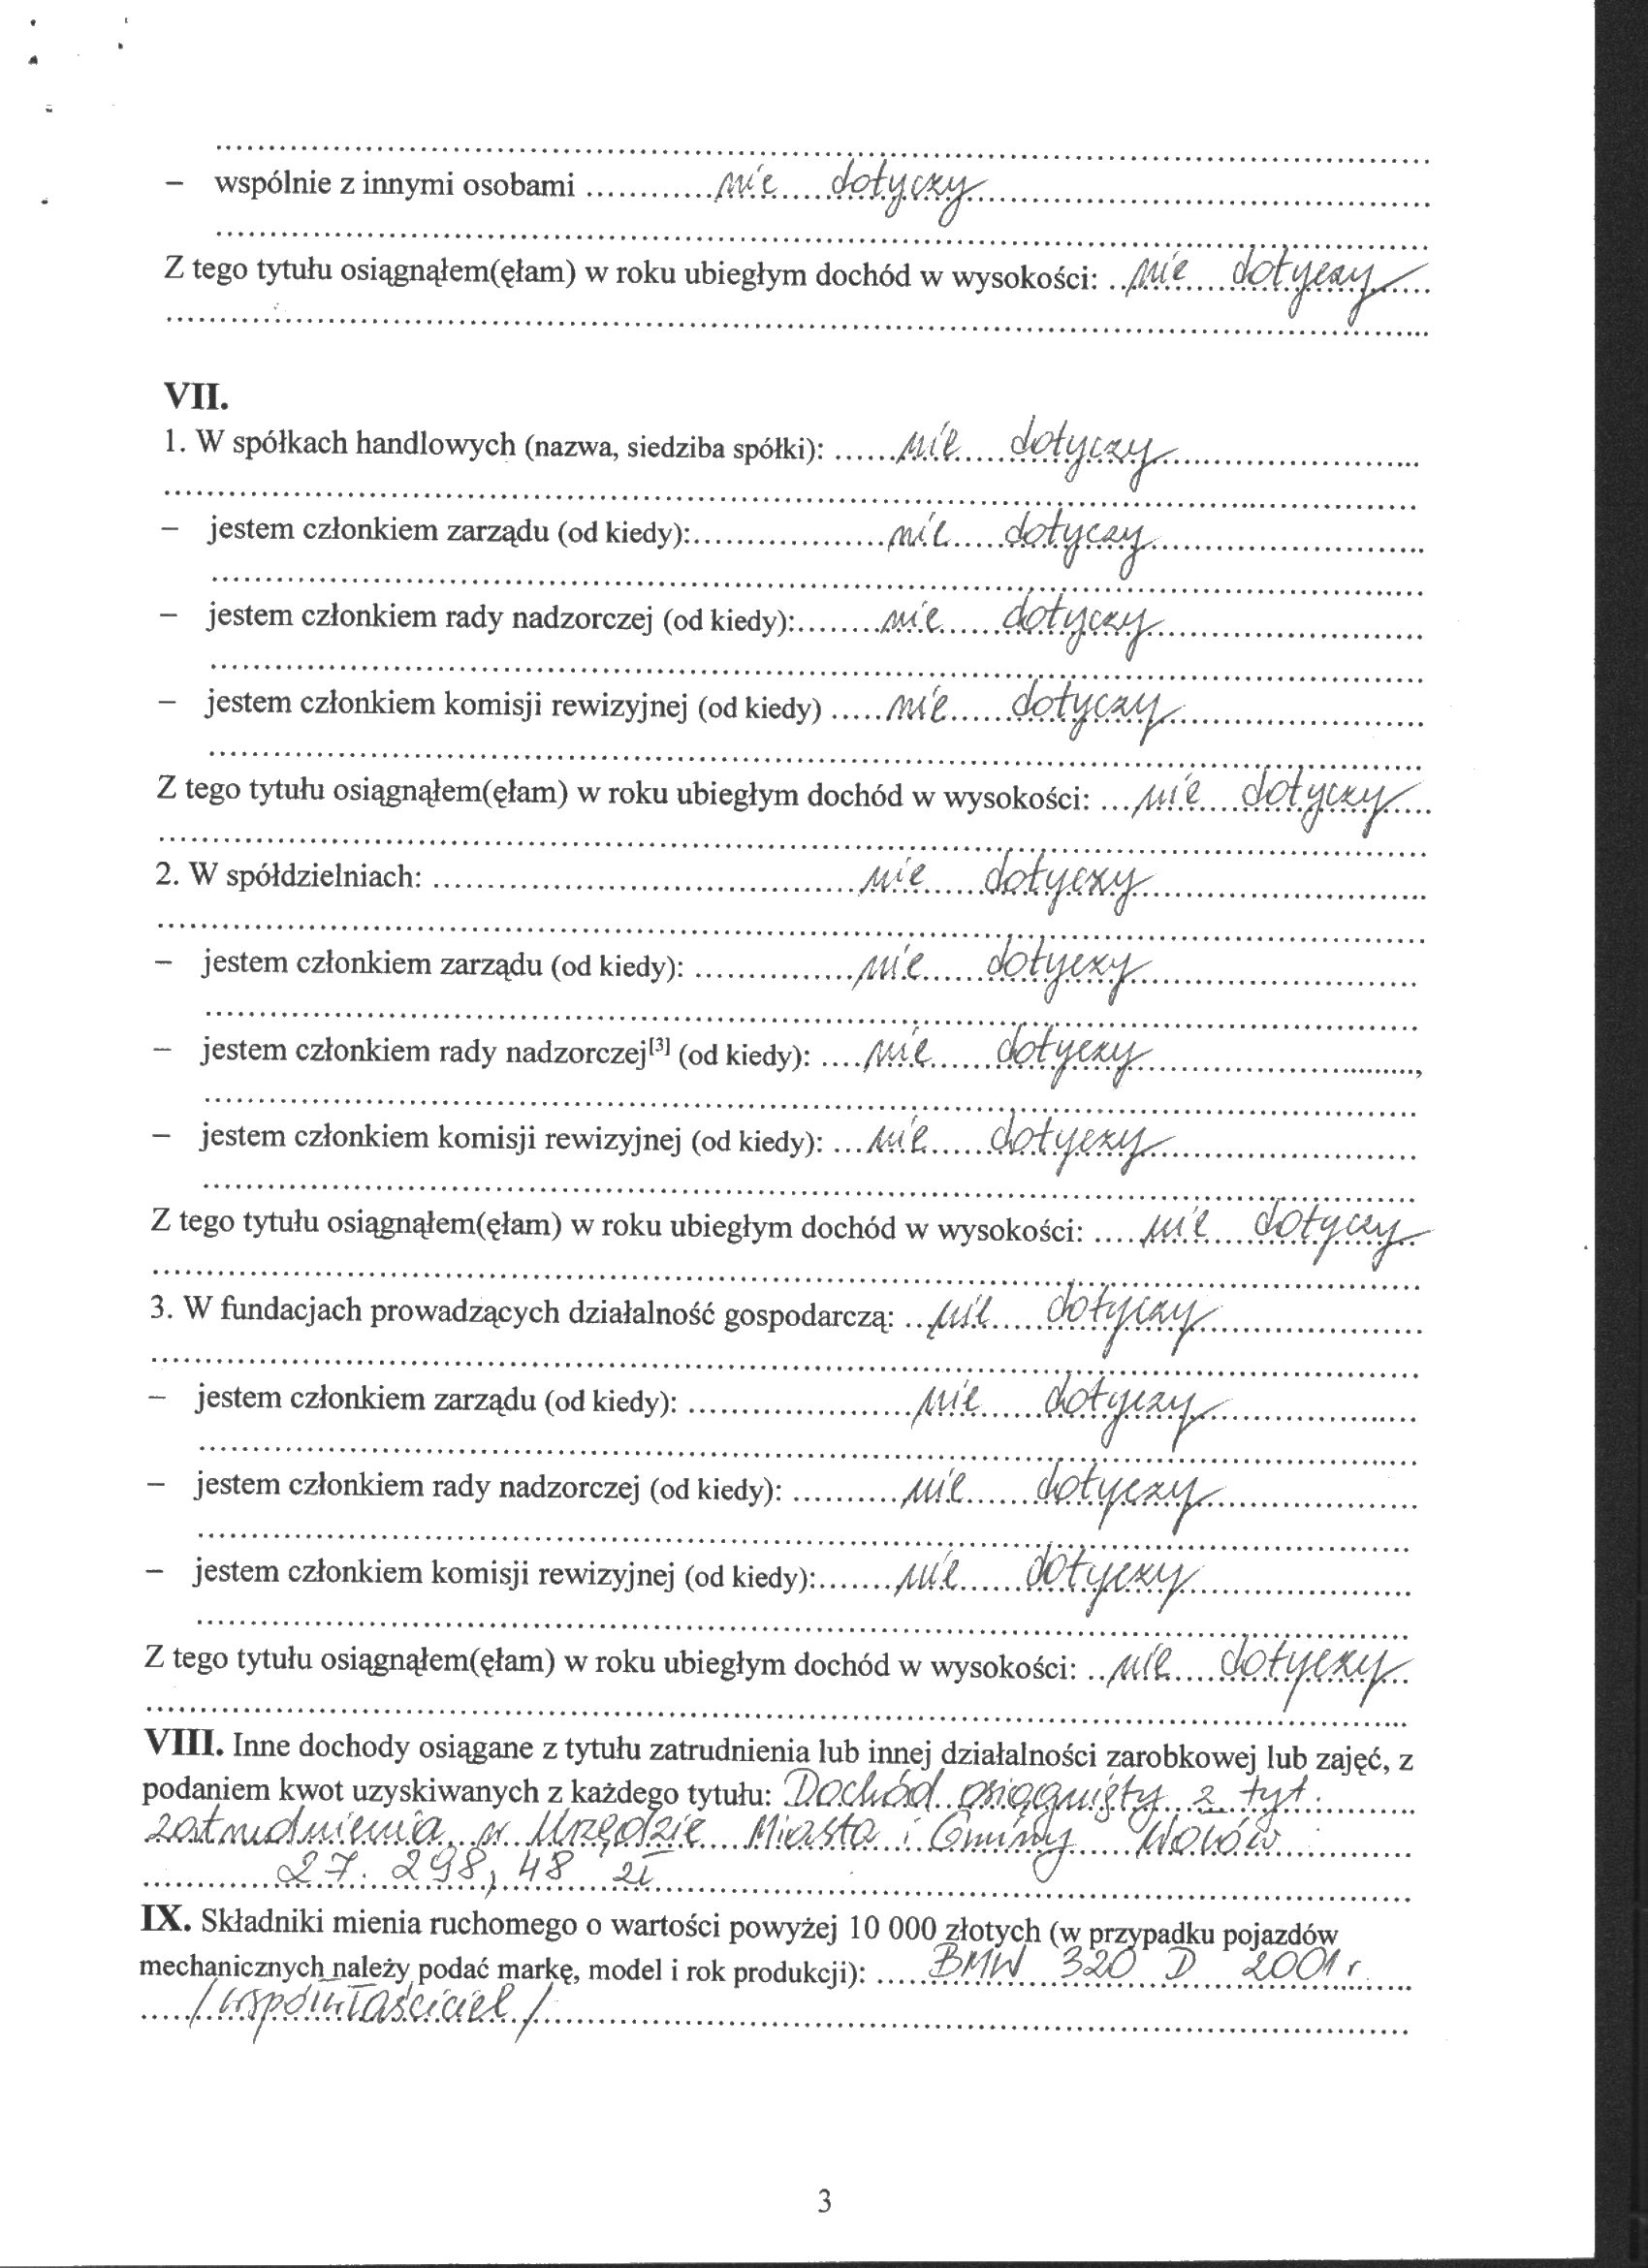 – wspólnie z innymi osobami ............nie....dotyczy............
Z tego tytułu osiągnąłem(ęłam) w roku ubiegłym dochód w wysokości: ..nie....dotyczy....
VII.
1. W spółkach handlowych (nazwa, siedziba spółki): ......nie....dotyczy............
– jestem członkiem zarządu (od kiedy):..................nie....dotyczy............
– jestem członkiem rady nadzorczej (od kiedy):........nie....dotyczy............
– jestem członkiem komisji rewizyjnej (od kiedy) .....nie....dotyczy............
Z tego tytułu osiągnąłem(ęłam) w roku ubiegłym dochód w wysokości: ...nie...dotyczy....
2. W spółdzielniach: ............nie....dotyczy............
– jestem członkiem zarządu (od kiedy): ..............nie....dotyczy............
– jestem członkiem rady nadzorczej[3] (od kiedy): ....nie....dotyczy............,
– jestem członkiem komisji rewizyjnej (od kiedy): ...nie....dotyczy............
Z tego tytułu osiągnąłem(ęłam) w roku ubiegłym dochód w wysokości: ....nie...dotyczy
3. W fundacjach prowadzących działalność gospodarczą: ..nie....dotyczy............
– jestem członkiem zarządu (od kiedy): ............nie....dotyczy............
– jestem członkiem rady nadzorczej (od kiedy): ..........nie....dotyczy............
– jestem członkiem komisji rewizyjnej (od kiedy):.......nie....dotyczy............
Z tego tytułu osiągnąłem(ęłam) w roku ubiegłym dochód w wysokości: ..nie....dotyczy..
VIII. Inne dochody osiągane z tytułu zatrudnienia lub innej działalności zarobkowej lub zajęć, z
podaniem kwot uzyskiwanych z każdego tytułu: Dochód osiągnięty z tyt.
zatrudnienia w Urzędzie Miasta i Gminy Wołów
27.298,48 zł
IX. Składniki mienia ruchomego o wartości powyżej 10 000 złotych (w przypadku pojazdów
mechanicznych należy podać markę, model i rok produkcji): .....BMW 320 D 2001 r.
/współwłaściciel/
3